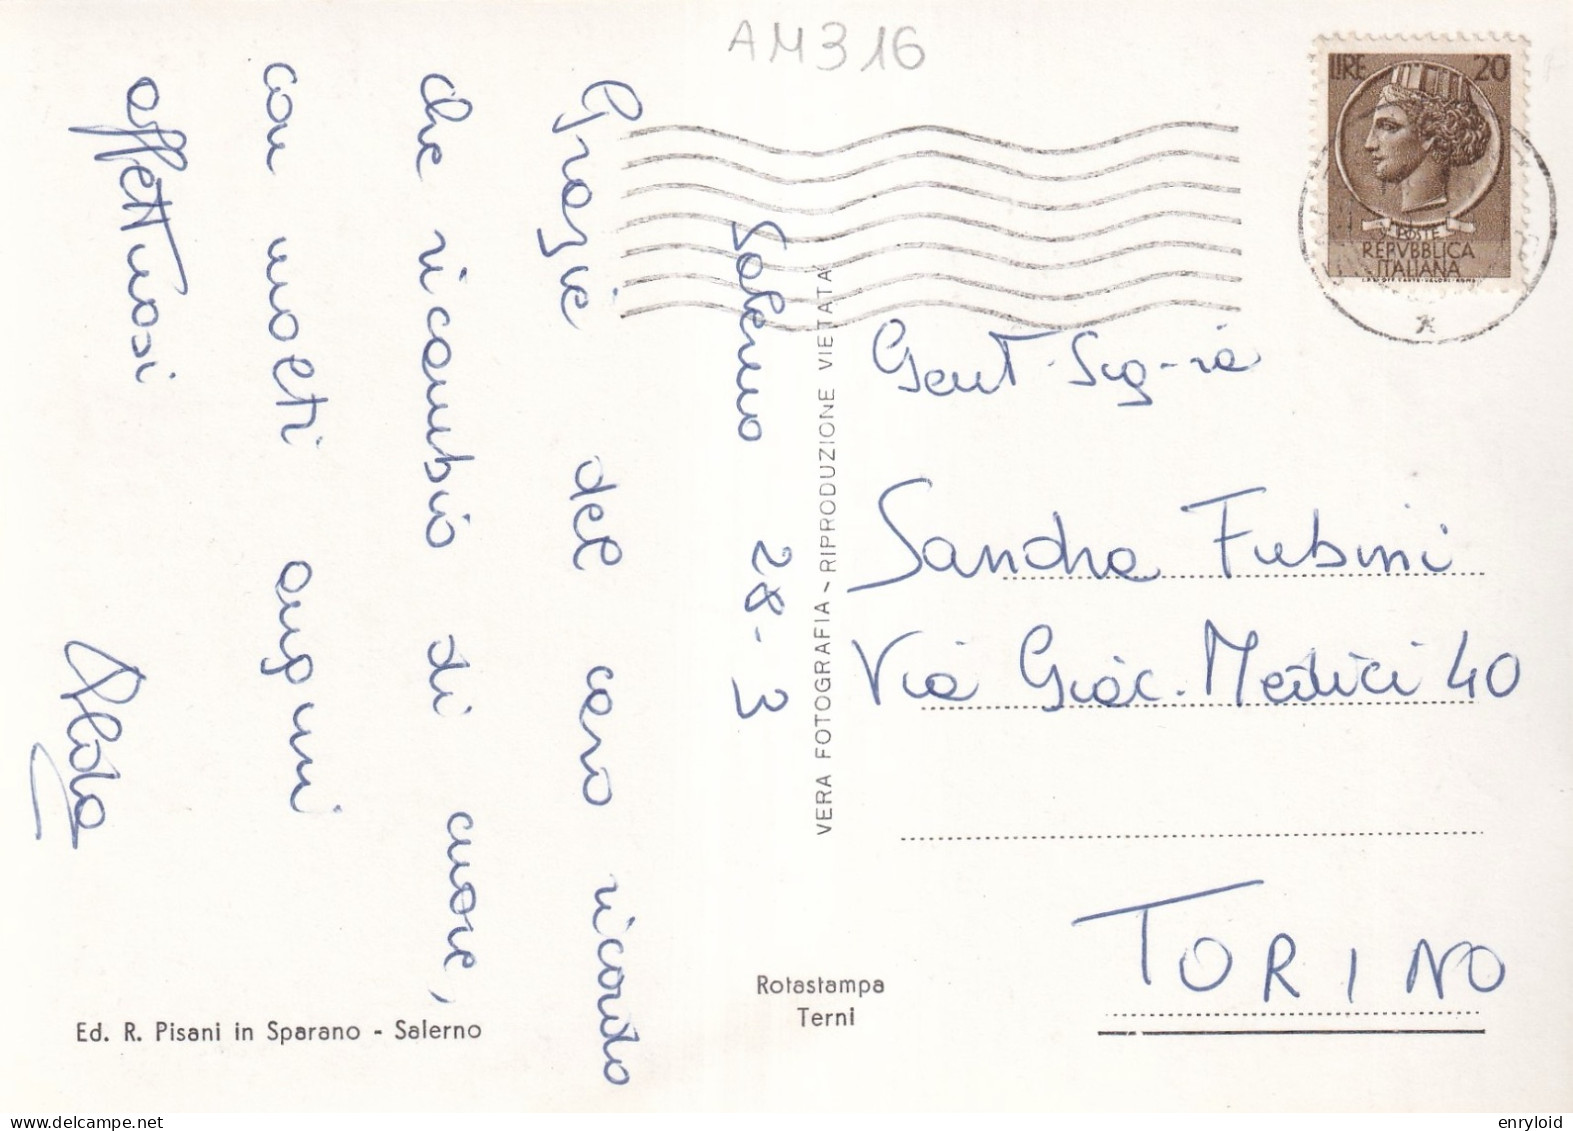 AM316
LIRE 20
POSTE
REPVBBLICA
ITALIANA
Salerno 28-3
Grazie del caro ricordo
che ricambio di cuore,
con molti auguri
affettuosi
Alda
VERA FOTOGRAFIA ~ RIPRODUZIONE VIETATA
Gent. Sig-ra
Sandra Fubini
Via Giac. Medici 40
TORINO
Rotastampa
Terni
Ed. R. Pisani in Sparano - Salerno
enryloid